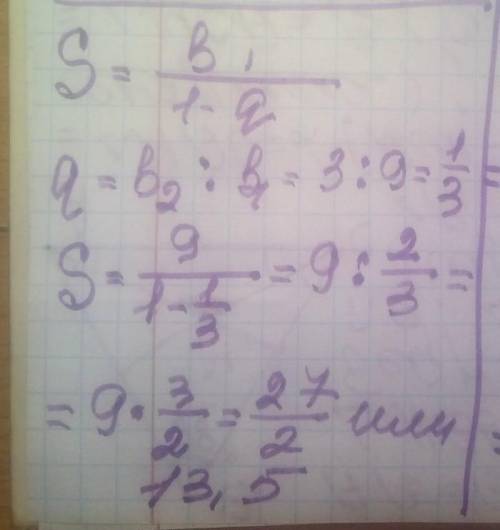 S = b₁ / (1 - q)
q = b₂ : b₁ = 3 : 9 = 1/3
S = 9 / (1 - 1/3) = 9 : 2/3 =
= 9 · 3/2 = 27/2 или
13,5